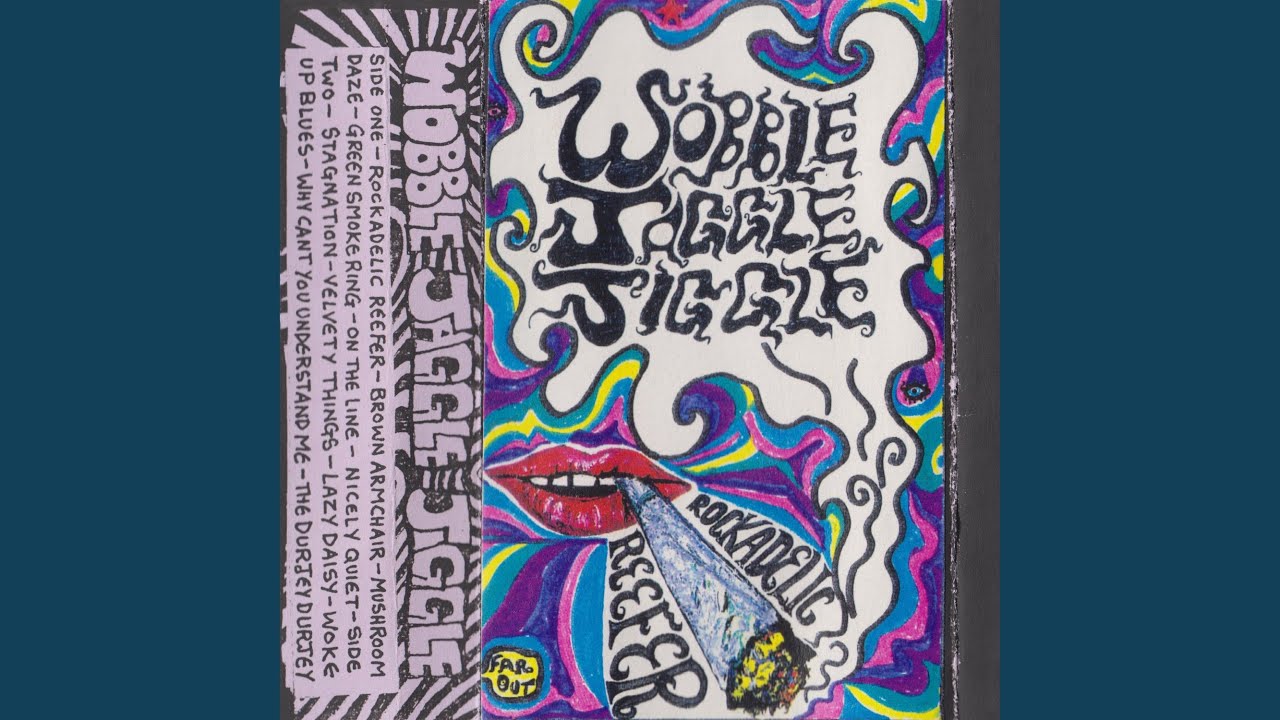 WOBBLE JAGGLE JIGGLE
SIDE ONE - ROCKADELIC REEFER - BROWN ARMCHAIR - MUSHROOM
DAZE - GREEN SMOKE RING - ON THE LINE - NICELY QUIET - SIDE
TWO - STAGNATION - VELVETY THINGS - LAZY DAISY - WOKE
UP BLUES - WHY CANT YOU UNDERSTAND ME - THE DURJEY DURJEY
WOBBLE
JAGGLE
JIGGLE
ROCKADELIC
REEFER
FAR
OUT